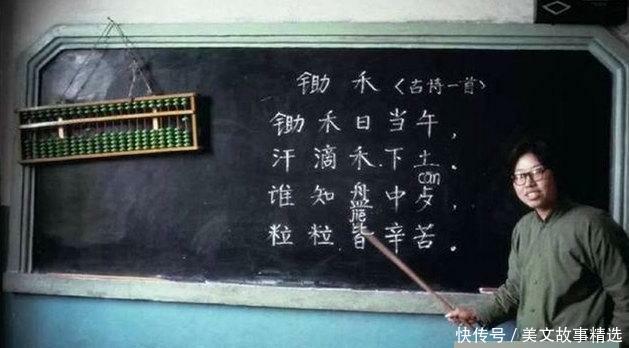 锄禾〈古诗一首〉
锄禾日当午，
汗滴禾下土。
can
谁知盘中歺，
粒粒皆辛苦。
快传号 / 美文故事精选